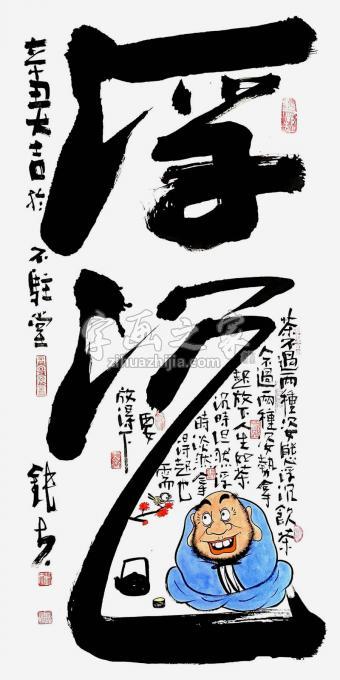 浮沉
茶不過兩種姿態浮沉飲茶
人不過兩種姿勢拿
起放下人生如茶
沉時坦然浮
時淡然拿
得起也
需
要
放得下
辛丑大吉於 不駐堂
字画之家
zihuazhijia.com